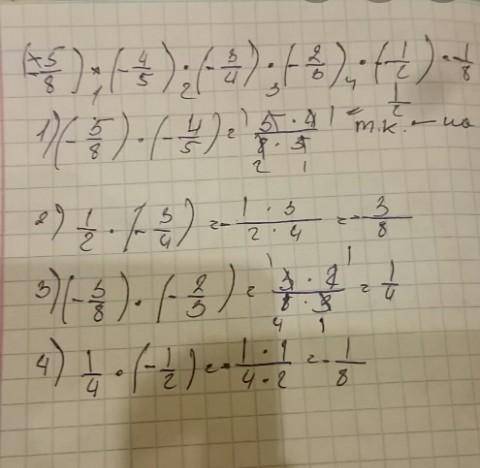 (-5/8) · (-4/5) · (-3/4) · (-2/3) · (-1/2) = -1/8
1 2 3 4
1) (-5/8) · (-4/5) = 5 · 4 / 8 · 5 = 1/2 т.к. — на
2) 1/2 · (-3/4) = - 1 · 3 / 2 · 4 = - 3/8
3) (-3/8) · (-2/3) = 3 · 2 / 8 · 3 = 1/4
4) 1/4 · (-1/2) = - 1 · 1 / 4 · 2 = - 1/8